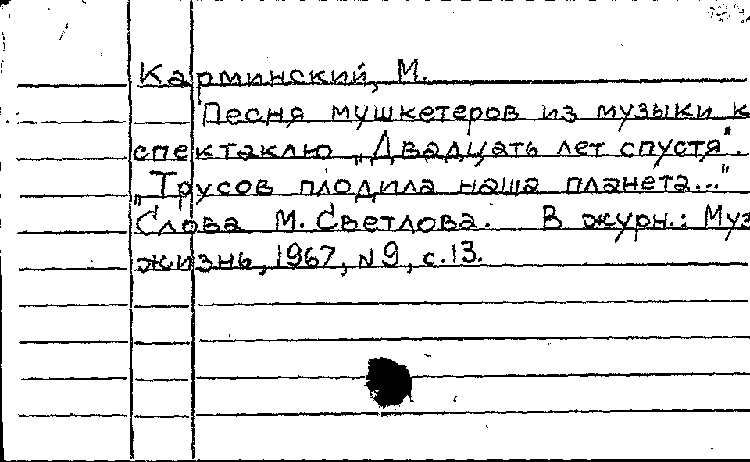 Карминский, М.
Песня мушкетеров из музыки к
спектаклю „Двадцать лет спустя".
„Трусов плодила наша планета..."
Слова М. Светлова. В журн.: Муз
жизнь, 1967, N9, с.13.